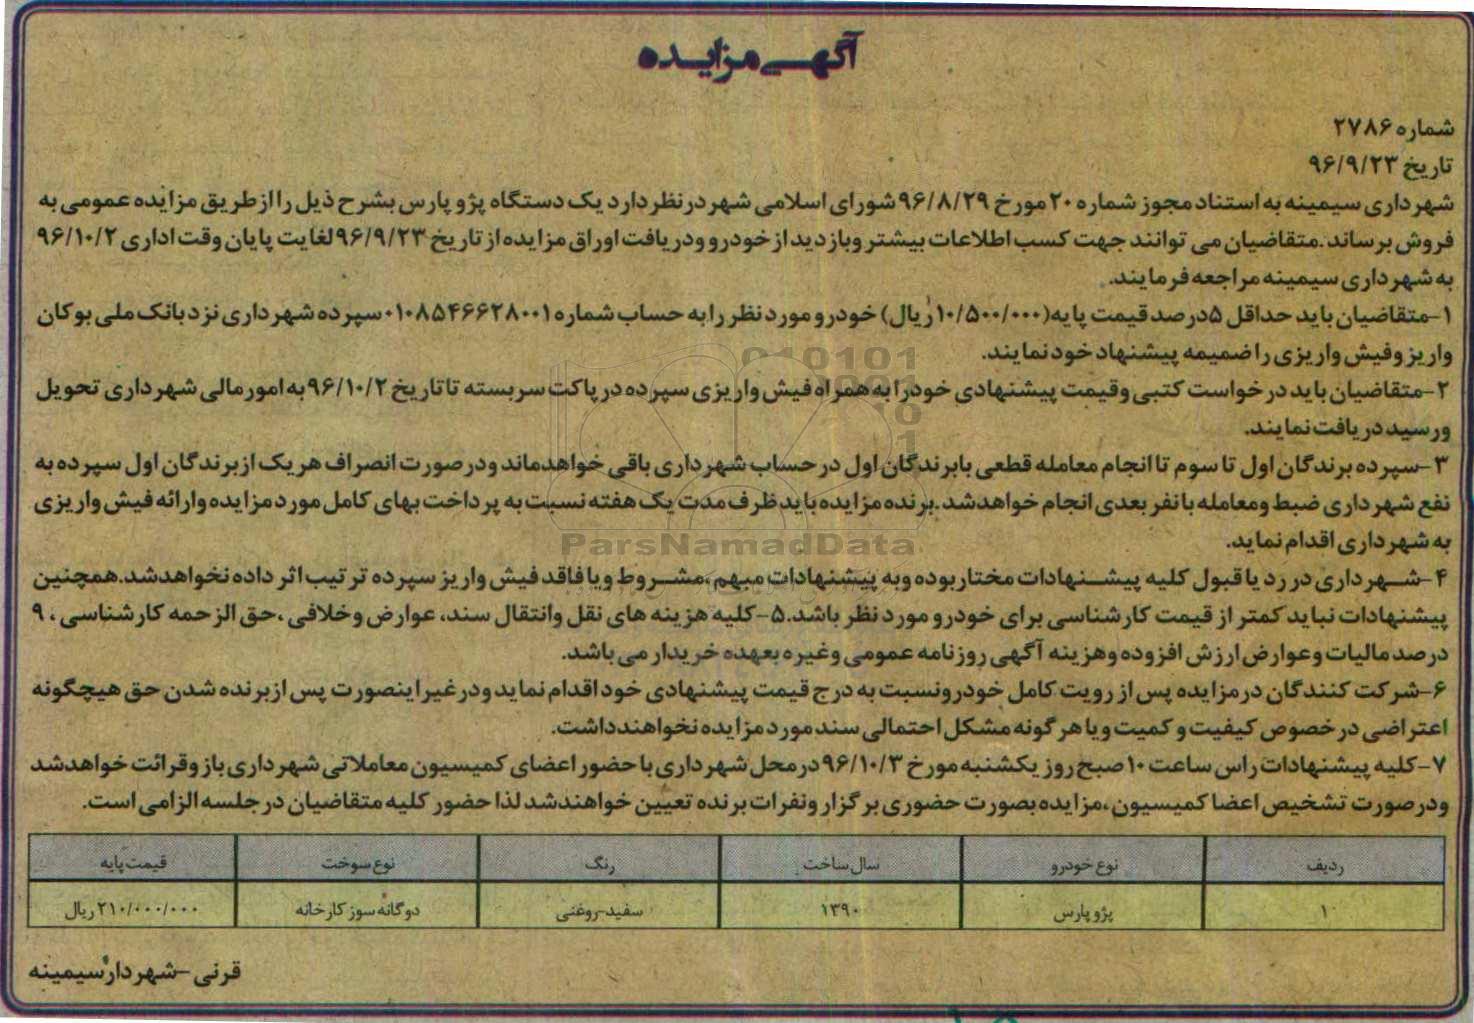 آگهی مزایده
شماره ۲۷۸۶
تاریخ ۹۶/۹/۲۳
شهرداری سیمینه به استناد مجوز شماره ۲۰ مورخ ۹۶/۸/۲۹ شورای اسلامی شهر در نظر دارد یک دستگاه پژو پارس بشرح ذیل را از طریق مزایده عمومی به
فروش برساند. متقاضیان می توانند جهت کسب اطلاعات بیشتر و بازدید از خودرو و دریافت اوراق مزایده از تاریخ ۹۶/۹/۲۳ لغایت پایان وقت اداری ۹۶/۱۰/۲
به شهرداری سیمینه مراجعه فرمایند.
۱-متقاضیان باید حداقل ۵ درصد قیمت پایه (۱۰/۵۰۰/۰۰۰ ریال) خودرو مورد نظر را به حساب شماره ۰۱۰۸۵۴۶۶۲۸۰۰۱ سپرده شهرداری نزد بانک ملی بوکان
واریز و فیش واریزی را ضمیمه پیشنهاد خود نمایند.
۲-متقاضیان باید درخواست کتبی و قیمت پیشنهادی خود را به همراه فیش واریزی سپرده در پاکت سربسته تا تاریخ ۹۶/۱۰/۲ به امور مالی شهرداری تحویل
و رسید دریافت نمایند.
۳-سپرده برندگان اول تا سوم تا انجام معامله قطعی با برندگان اول در حساب شهرداری باقی خواهد ماند و در صورت انصراف هر یک از برندگان اول سپرده به
نفع شهرداری ضبط و معامله با نفر بعدی انجام خواهد شد. برنده مزایده باید ظرف مدت یک هفته نسبت به پرداخت بهای کامل مورد مزایده و ارائه فیش واریزی
به شهرداری اقدام نماید.
۴-شهرداری در رد یا قبول کلیه پیشنهادات مختار بوده و به پیشنهادات مبهم، مشروط و یا فاقد فیش واریز سپرده ترتیب اثر داده نخواهد شد. همچنین
پیشنهادات نباید کمتر از قیمت کارشناسی برای خودرو مورد نظر باشد. ۵-کلیه هزینه های نقل و انتقال سند، عوارض و خلافی، حق الزحمه کارشناسی، ۹
درصد مالیات و عوارض ارزش افزوده و هزینه آگهی روزنامه عمومی و غیره بعهده خریدار می باشد.
۶-شرکت کنندگان در مزایده پس از رویت کامل خودرو نسبت به درج قیمت پیشنهادی خود اقدام نماید و در غیر اینصورت پس از برنده شدن حق هیچگونه
اعتراضی در خصوص کیفیت و کمیت و یا هر گونه مشکل احتمالی سند مورد مزایده نخواهند داشت.
۷-کلیه پیشنهادات راس ساعت ۱۰ صبح روز یکشنبه مورخ ۹۶/۱۰/۳ در محل شهرداری با حضور اعضای کمیسیون معاملاتی شهرداری باز و قرائت خواهد شد
و در صورت تشخیص اعضا کمیسیون، مزایده بصورت حضوری برگزار و نفرات برنده تعیین خواهند شد لذا حضور کلیه متقاضیان در جلسه الزامی است.
ردیف نوع خودرو سال ساخت رنگ نوع سوخت قیمت پایه
۱ پژو پارس ۱۳۹۰ سفید-روغنی دوگانه سوز کارخانه ۲۱۰/۰۰۰/۰۰۰ ریال
قرنی-شهردار سیمینه
010101
ParsNamadData